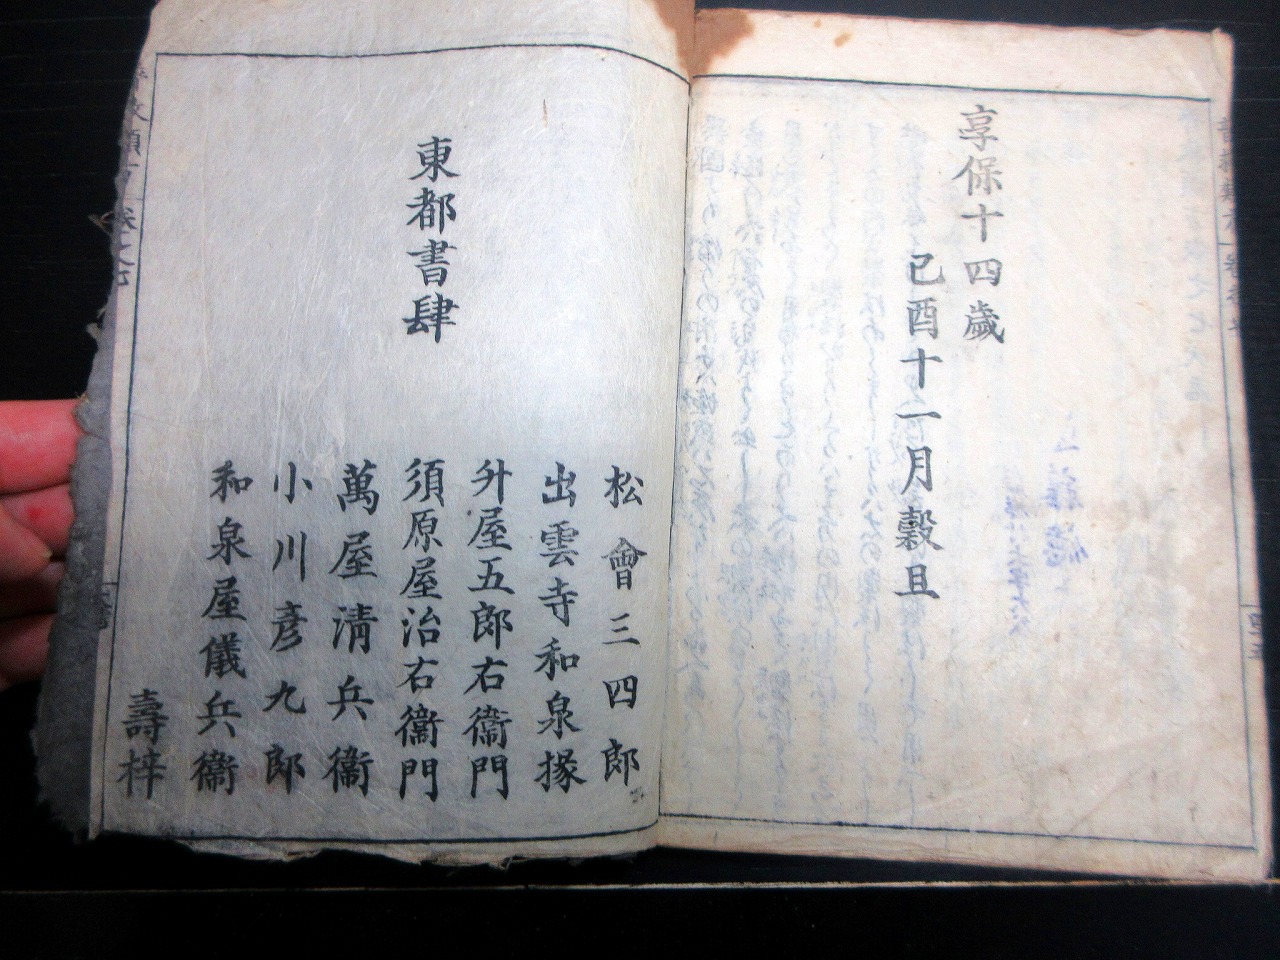 享保十四歲
己酉十一月穀旦
東都書肆
松會三四郎
出雲寺和泉掾
升屋五郎右衞門
須原屋治右衞門
萬屋清兵衞
小川彦九郎
和泉屋儀兵衞
壽梓